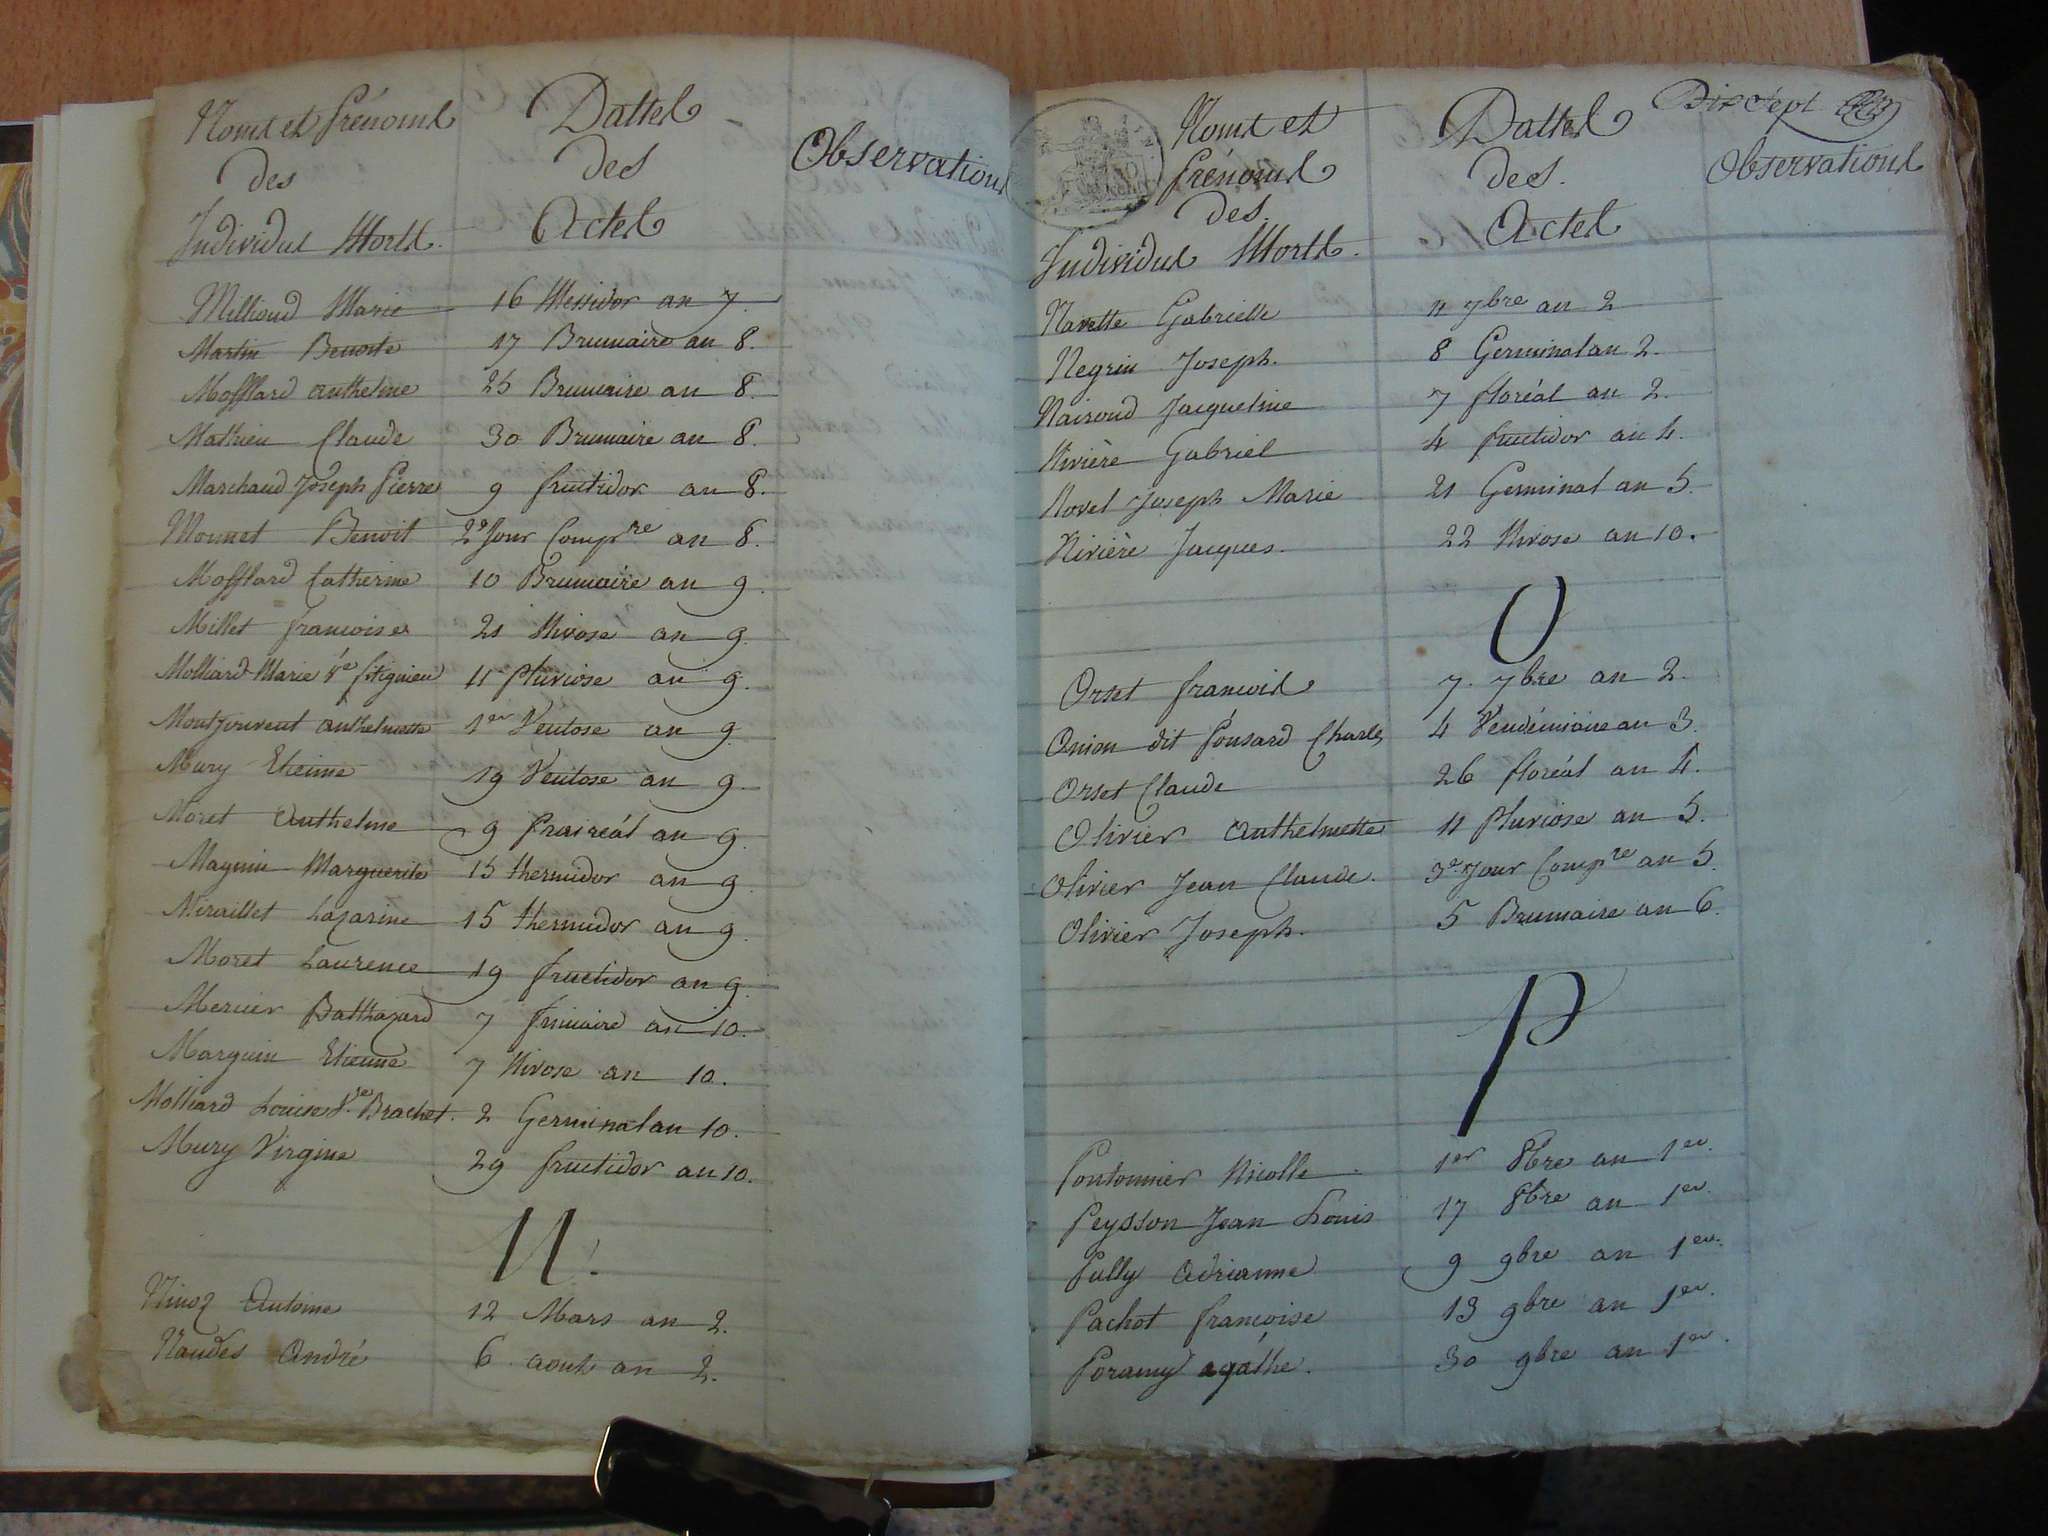 Noms et Prénoms
des
Individus Morts.
Dattes
des
Actes
Observations
Millioud Marie 16 Messidor an 7.
Martin Benoite 17 Brumaire an 8.
Mofflard anthelme 25 Brumaire an 8.
Mathieu Claude 30 Brumaire an 8.
Marchand Joseph Pierre 9 fructidor an 8.
Monnet Benoit 2e Jour Compre an 8.
Mofflard Catherine 10 Brumaire an 9.
Millet francoise 21 Nivose an 9.
Molliard Marie Ve 11 Pluviose an 9.
Montjouvent anthelmette 1er Ventose an 9.
Mury Etienne 19 Ventose an 9.
Moret Anthelme 9 Praireal an 9.
Magnin Marguerite 15 thermidor an 9.
Miraillet Lazarine 15 thermidor an 9.
Moret Laurence 19 fructidor an 9.
Mercier Balthazard 7 frimaire an 10.
Marguin Etienne 7 Nivose an 10.
Molliard Louise Ve Brachet. 2 Germinal an 10.
Mury Virgine 29 fructidor an 10.
N.
Ninoz Antoine 12 Mars an 2.
Naudes André 6 aout an 2.
Dix Sept
Noms et
Prénoms
des.
Individus Morts.
Dattes
des.
Actes
Observations
Navette Gabrielle 11 7bre an 2
Negrin Joseph. 8 Germinal an 2.
Nairoud Jacqueline 7 floréal an 2.
Nivière Gabriel 4 fructidor an 4.
Novel Joseph Marie 21 Germinal an 5.
Nivière Jacques. 22 Nivose an 10.
O
Orset francois 7. 7bre an 2.
Onion dit Ponsard Charles 4 Vendémiaire an 3.
Orset Claude 26 floréal an 4.
Olivier Anthelmette 11 Pluviose an 5.
Olivier Jean Claude. 3e Jour Compre an 5.
Olivier Joseph. 5 Brumaire an 6.
P
Pontonnier Nicolle 1er 8bre an 1er.
Peysson Jean Louis 17 8bre an 1er.
Pully Adrianne 9 9bre an 1er.
Pachot francoise 13 9bre an 1er.
Poramy agathe. 30 9bre an 1er.